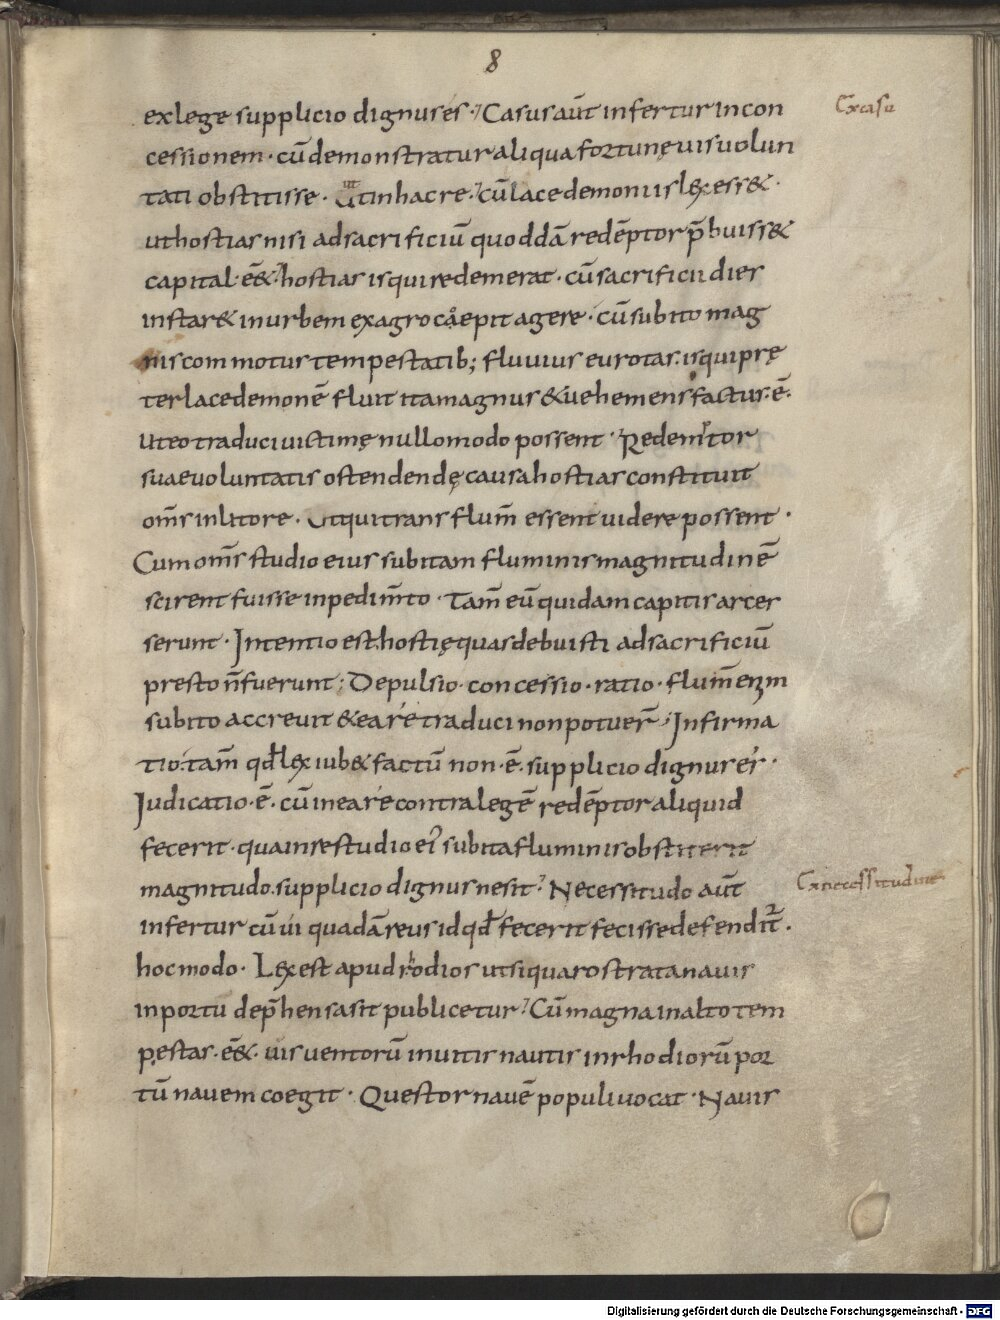 8
ex lege supplicio dignus es. Casus aūt infertur in con
Ex casu
cessionem. cū demonstratur aliqua fortunę uis uolun
tati obstitisse. Ut in hac re. cū lacedemoniis lex ess&.
ut hostias nisi ad sacrificiū quoddā redēptor p̄buiss&
capital ēē&. hostias is qui redemerat. cū sacrificii dies
instar& in urbem ex agro coepit agere. cū subito mag
nis commotus tempestatib; fluuius eurotas. is qui prę
ter lacedemonē fluit ita magnus & uehemens factus. ē.
Ut eo traduci uictimę nullo modo possent. Redemtor
suae uoluntatis ostendendę causa hostias constituit
om̄s in litore. Ut qui trans flum̄ essent uidere possent.
Cum om̄s studio eius subitam fluminis magnitudinē
scirent fuisse inpedim̄to. Tam̄ eū quidam capitis arces
serunt. Intentio est. hostię quas debuisti ad sacrificiū
presto n̄ fuerunt; Depulsio. concessio. ratio. flum̄ enim
subito accreuit & ea re traduci non potuer̄. Infirma
tio. tam̄ qđ lex iub& factū non. ē. supplicio dignus es.
Judicatio. ē. cū in ea re contra legē redēptor aliquid
fecerit. qua in re studio ei' subita fluminis obstiterit
magnitudo. supplicio dignus ne sit? Necessitudo aūt
Ex necessitudine
infertur cū ui quadā reus id qđ fecerit fecisse defendit̄.
hoc modo. Lex est apud rhodios ut siqua rostrata nauis
in portu dep̄hensa sit publicetur? Cū magna in alto tem
pestas. ēē&. uis uentorū inuitis nautis in rhodiorū por
tū nauem coegit. Questor nauē populi uocat. Nauis
Digitalisierung gefördert durch die Deutsche Forschungsgemeinschaft - DFG